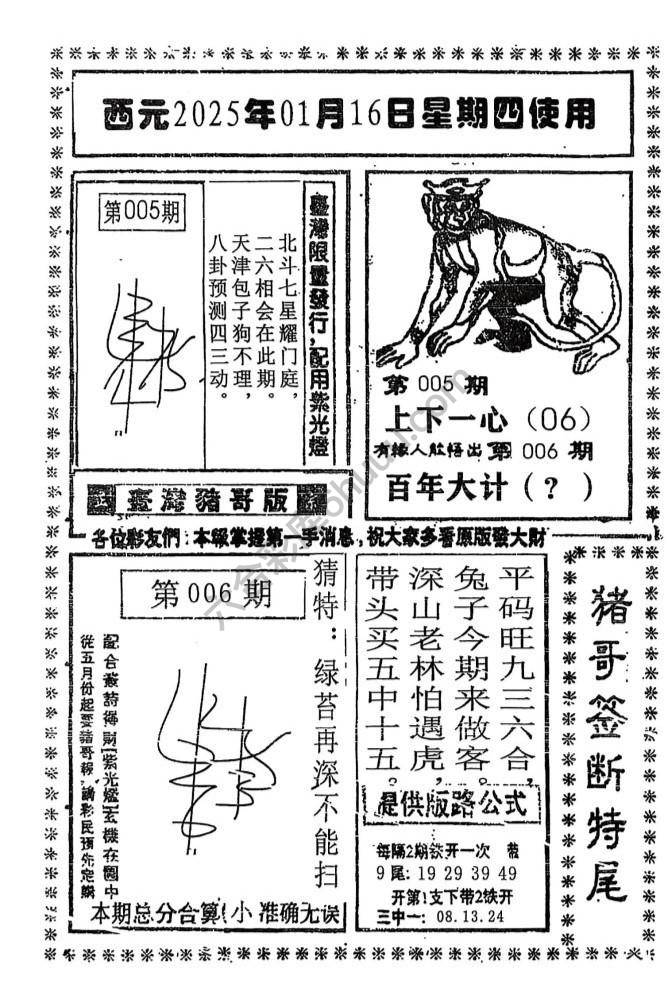 西元2025年01月16日星期四使用
第005期
臺灣限量發行，配用紫光燈
北斗七星耀门庭，
二六相会在此期。
天津包子狗不理，
八卦预测四三动。
第005期
上下一心（06）
有緣人能悟出第006期
百年大计（?）
臺灣豬哥版
各位彩友們：本報掌握第一手消息，祝大家多看原版發大財
第006期
猜特：绿苔再深不能扫
配合籤詩得財[紫光燈]玄機在圖中
從五月份起要豬哥報，請彩民預先定購
本期总分合算(小)准确无误
平码旺九三六合，
兔子今期来做客。
深山老林怕遇虎，
带头买五中十五。
提供版路公式
每隔2期铁开一次 带
9尾：19 29 39 49
开第1支下带2铁开
三中一：08.13.24
猪哥签断特尾
六合彩库ohuuu.com